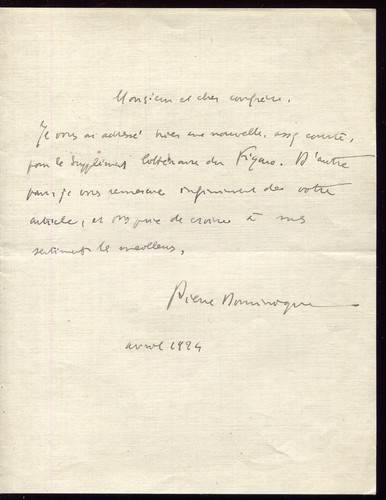 Monsieur et cher confrère,
Je vous ai adressé hier une nouvelle, assez courte,
pour le Supplément littéraire du Figaro. D'autre
part, je vous remercie infiniment de votre
article, et vous prie de croire à mes
sentiments les meilleurs,
Pierre Dominique
avril 1924